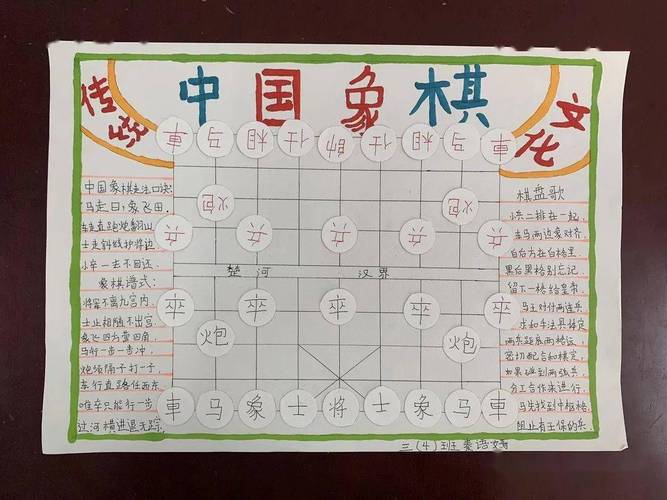 传统
中国象棋
文化
車 马 相 仕 帥 仕 相 马 車
炮 炮
兵 兵 兵 兵 兵
楚河 汉界
卒 卒 卒 卒 卒
炮 炮
車 马 象 士 将 士 象 马 車
中国象棋走法口诀:
马走日,象飞田,
车走直路炮翻山,
士走斜线护将边,
小卒一去不回还。
象棋谱式:
将军不离九宫内,
士止相随不出宫。
象飞四方营四角,
马行一步一步冲,
炮须隔子打一子,
车行直路任西东,
唯卒只能行一步,
过河横进退无踪。
棋盘歌
兵二排在一起,
车马两边象对齐,
白后方在白格里,
黑后黑格别忘记
留下一格给皇帝。
马王对付两连兵
求和手法是肯定
两兵距底两格远,
密切配合和棋定,
如果碰到两强兵,
分工合作来进行,
马先找到中格格,
阻止有王保的兵,
三(4)班